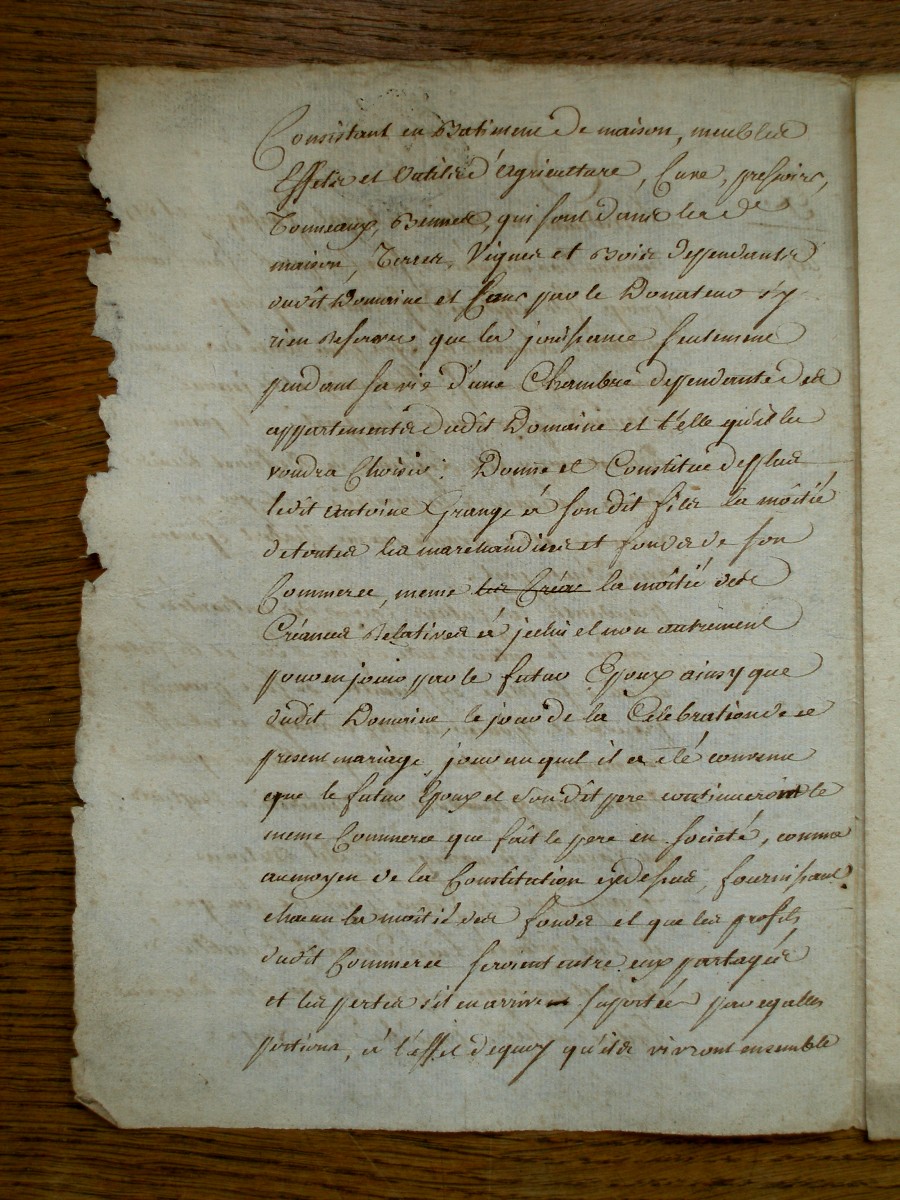 Consistant en Batiment de maison, meubles
Effets et Outils d'agriculture, Cuve, pressoirs,
Tonneaux, Bennes, qui sont dans la de
maison, Terres, Vignes et Bois dependants
dudit Domaine et sans par le Donateur s'y
rien Reserver que la jouissance seulement
pendant sa vie d'une Chambre dependante des
appartements dudit Domaine et telle qu'il la
voudra Choisir. Donne et Constitue de plus
ledit antoine Grange à son dit fils la moitié
de toutes les marchandises et fonds de son
Commerce, meme les Créan la moitié des
Créances Relatives à jceluy et non autrement
pour en jouir par le futur Epoux ainsy que
dudit Domaine, le jour de la Célébration de ce
present mariage jour auquel il a été convenu
que le futur Epoux et son dit pere continueront le
meme Commerce que fait le pere en société, comme
au moyen de la Constitution cy dessus, fournissant
chacun la moitié des fonds et que les profits
dudit Commerce seroient entre eux partagés
et les pertes s'il en arrive suportées par egales
portions, à l'effet de quoy qu'ils vivront ensemble